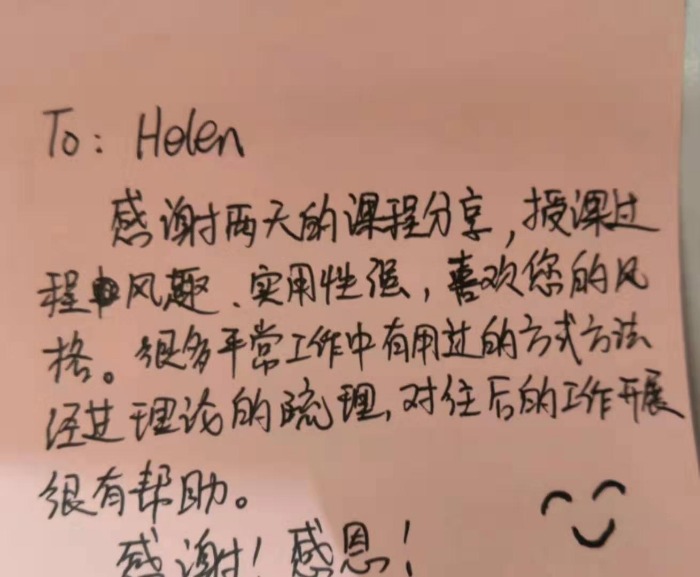 To: Helen
感谢两天的课程分享，授课过
程中风趣、实用性强，喜欢您的风
格。很多平常工作中有用过的方式方法
经过理论的疏理，对往后的工作开展
很有帮助。
感谢！感恩！